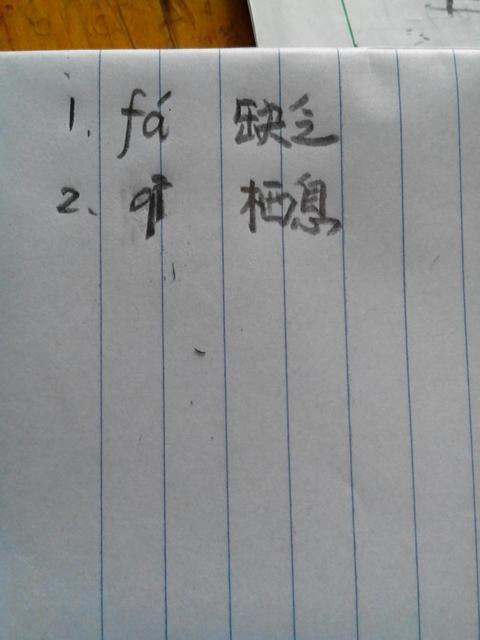 1. fá 缺乏
2、 qī 栖息